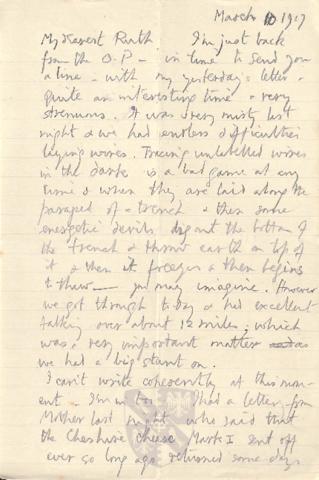 March 10 1917
My dearest Ruth I'm just back
from the O.P – in time to send you
a line – with my yesterday's letter.
Quite an interesting time & very
strenuous. It was very misty last
night & we had endless difficulties
laying wires. Tracing unlabelled wires
in the dark is a bad game at any
time & when they are laid along the
parapet of a trench & then some
energetic devils dig out the bottom of
the trench & throw earth on top of
it & then it freezes & then begins
to thaw — you may imagine. However
we got through today & had excellent
talking over about 12 miles; which
was a very important matter as
we had a big stunt on.
I can't write coherently at this mom-
ent. I'm in I had a letter from
Mother last night who said that
the Cheshire Cheese Mark I sent off
ever so long ago returned some days